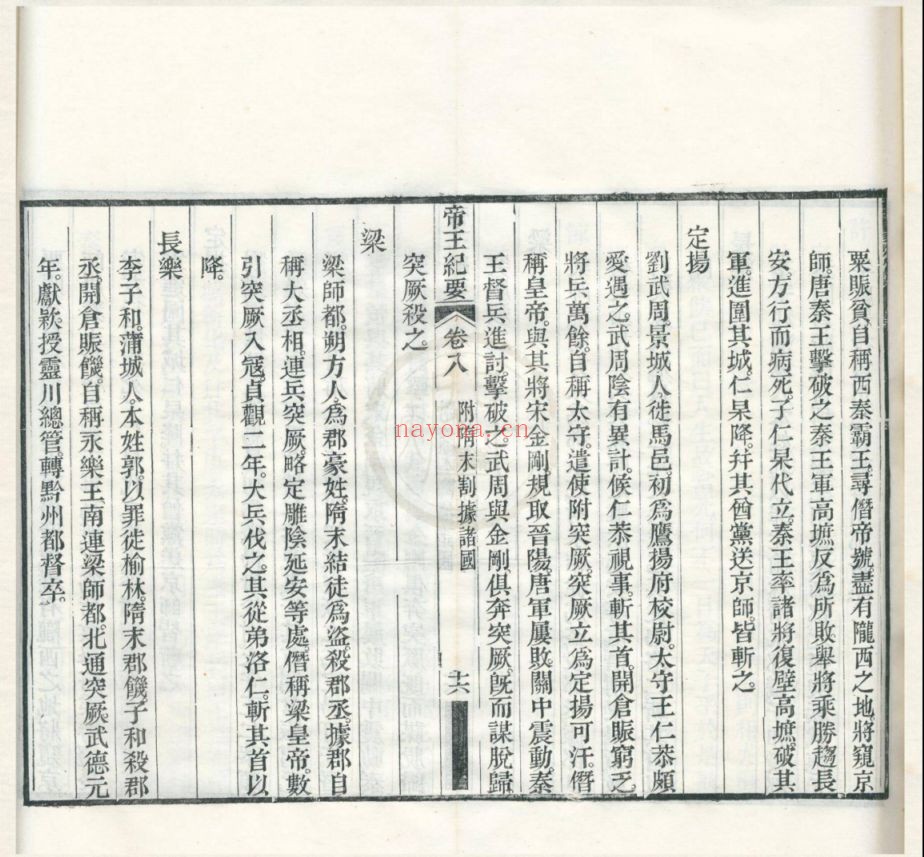 粟賑貧自稱西秦霸王尋僭帝號盡有隴西之地將窺京
師唐秦王擊破之秦王軍高墌反爲所敗舉將乘勝趨長
安方行而病死子仁杲代立秦王率諸將復壁高墌破其
軍進圍其城仁杲降幷其酋黨送京師皆斬之
定揚
劉武周景城人徙馬邑初爲鷹揚府校尉太守王仁恭頗
愛遇之武周陰有異計候仁恭視事斬其首開倉賑窮乏
將兵萬餘自稱太守遣使附突厥突厥立爲定揚可汗僭
稱皇帝與其將宋金剛規取晉陽唐軍屢敗關中震動秦
王督兵進討擊破之武周與金剛俱奔突厥旣而謀脫歸
帝王紀要 卷八 附隋末割據諸國 十六
突厥殺之
梁
梁師都朔方人爲郡豪姓隋末結徒爲盜殺郡丞據郡自
稱大丞相連兵突厥略定雕陰延安等處僭稱梁皇帝數
引突厥入寇貞觀二年大兵伐之其從弟洛仁斬其首以
降
長樂
李子和蒲城人本姓郭以罪徙榆林隋末郡饑子和殺郡
丞開倉賑饑自稱永樂王南連梁師都北通突厥武德元
年獻欵授靈川總管轉黔州都督卒
nayona.cn